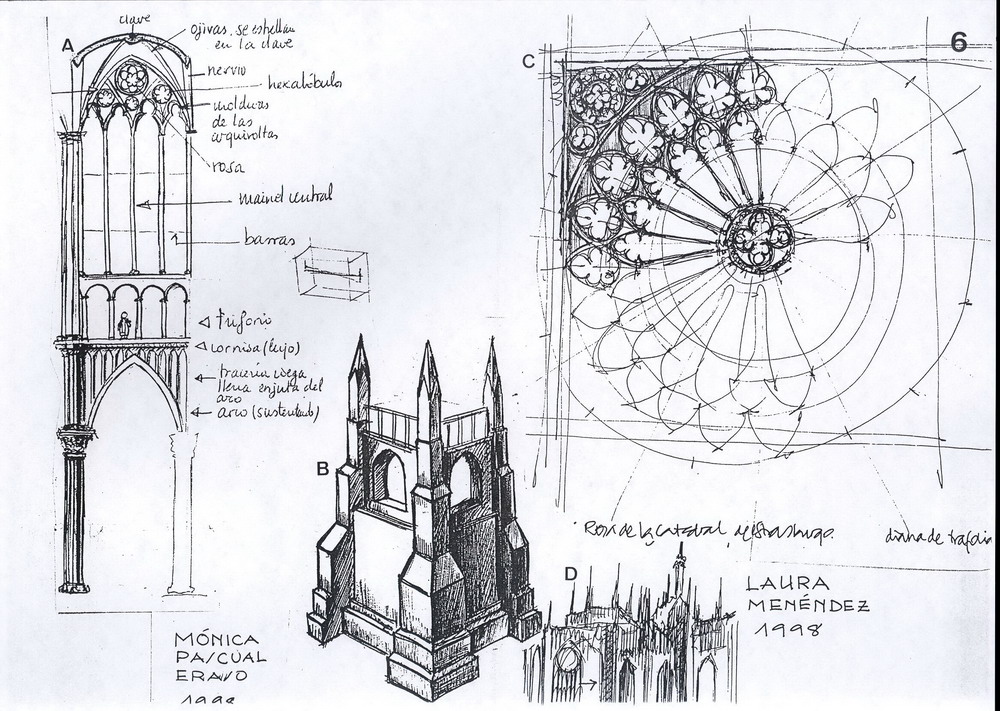 A
clave
ojivas. se estrellan
en la clave
nervio
hexalóbulo
molduras
de las
arquivoltas
rosa
mainel central
barras
triforio
cornisa (lujo)
tracería ciega
llena enjuta del
arco
arco (sustentado)
MÓNICA
PASCUAL
ERAVO
1998
B
C
6
Rosa de la Catedral de Estrasburgo.
diana de
D
LAURA
MENÉNDEZ
1998